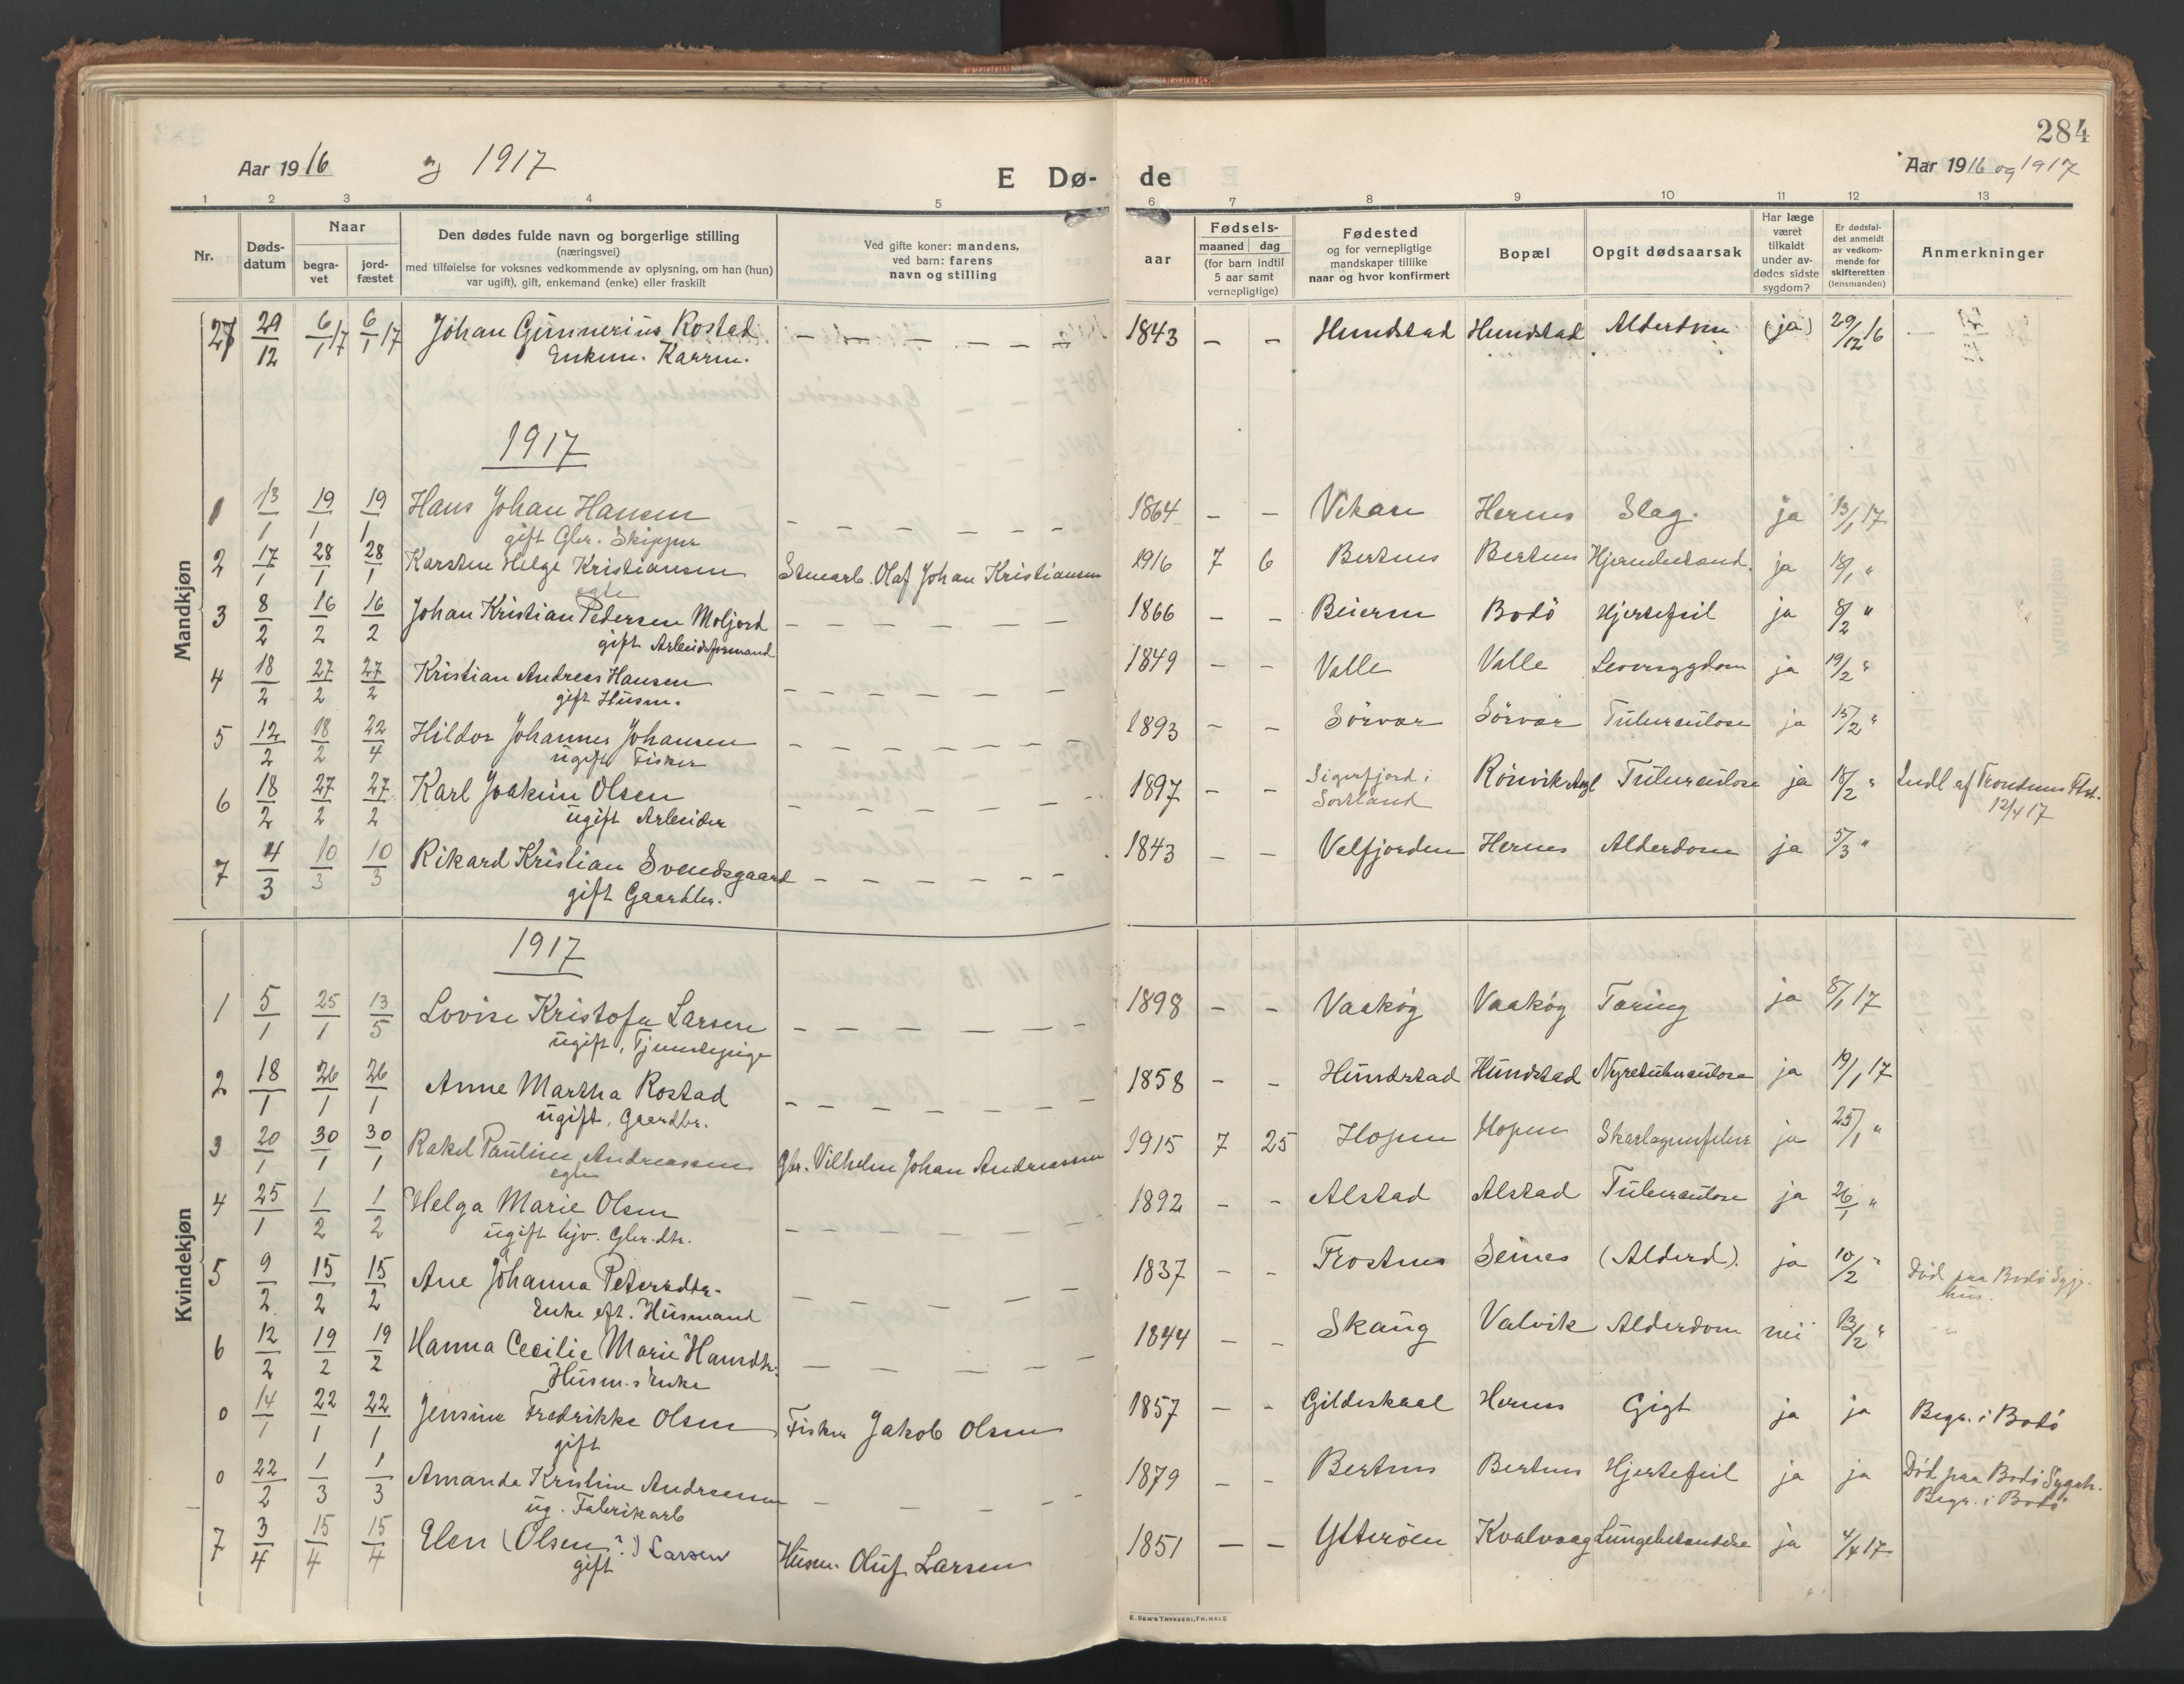 284
Aar 1916 og 1917 E Dø- de Aar 1916 og 1917
1 2 3 4 5 6 7 8 9 10 11 12 13
Nr.
Døds-
datum
Naar
begra-
vet
jord-
fæstet
Den dødes fulde navn og borgerlige stilling
(næringsvei)
med tilføielse for voksnes vedkommende av oplysning, om han (hun)
var ugift), gift, enkemand (enke) eller fraskilt
Ved gifte koner: mandens,
ved barn: farens
navn og stilling
aar
Fødsels-
maaned dag
(for barn indtil
5 aar samt
vernepligtige)
Fødested
og for vernepligtige
mandskaper tillike
naar og hvor konfirmert
Bopæl
Opgit dødsaarsak
Har læge
været
tilkaldt
under av-
dødes sidste
sygdom?
Er dødsfal-
det anmeldt
av vedkom-
mende for
skifteretten
(lensmanden)
Anmerkninger
Mandkjøn
27 29/12 6/1 17 6/1 17 Johan Gunnerius Rostad — — — — — — 1843 — — Hundstad Hundstad Alderdom (ja) 29/12 16
Enkem. Karrm.
1917
1 13/1 19/1 19/1 Hans Johan Hansen — — — — — — 1864 — — Vikan Hernes Slag. ja 13/1 17
gift Gbr. Skipper
2 17/1 28/1 28/1 Karsten Helge Kristiansen Stuearb. Olaf Johan Kristiansen 1916 7 6 Bertnes Bertnes Hjernebetænd. ja 18/1 "
egte
3 8/2 16/2 16/2 Johan Kristian Pedersen Moljord — — — — — — 1866 — — Beiern Bodö Hjertefeil ja 8/2 "
gift Arbeidsformand
4 18/2 27/2 27/2 Kristian Andreas Hansen — — — — — — 1849 — — Valle Valle Leversygdom ja 19/2 "
gift Husm.
5 12/2 18/2 22/4 Hildor Johannes Johansen — — — — — — 1893 — — Sörvær Sörvær Tuberculose ja 15/2 "
ugift Fisker
6 18/2 27/2 27/2 Karl Joakim Olsen — — — — — — 1897 — — Sigerfjord i Sortland Rönvik Asyl Tuberculose ja 18/2 " Indl af Trondenes
ugift Arbeider 12/4 17
7 4/3 10/3 10/3 Rikard Kristian Svendsgaard — — — — — — 1843 — — Velfjorden Hernes Alderdom ja 5/3 "
gift Gaardbr.
Kvindekjøn
1917
1 5/1 25/1 13/5 Lovise Kristofa Larsen — — — — — — 1898 — — Vaakög Vaakög Tæring ja 8/1 17
ugift, Tjenestepige
2 18/1 26/1 26/1 Anne Martha Rostad — — — — — — 1858 — — Hundstad Hundstad Nyretuberculose ja 19/1 17
ugift, Gaardbr.
3 20/1 30/1 30/1 Rakel Pauline Andreassen Gbr. Vilhelm Johan Andreassen 1915 7 25 Hopen Hopen Skarlagensfeber ja 25/1 "
egte
4 25/1 1/2 1/2 Helga Marie Olsen — — — — — — 1892 — — Alstad Alstad Tuberculose ja 26/1 "
ugift hjv. Gbr.dtr.
5 9/2 15/2 15/2 Ane Johanna Petersdtr. — — — — — — 1837 — — Frostnes Seines (Alderd). ja 10/2 " Död paa Bodö Syge-
Enke eft. Husmand hus.
6 12/2 19/2 19/2 Hanna Cecilie Marie Hansdtr. — — — — — 1844 — — Skaug Valvik Alderdom nei 13/2 "
Husm.s Enke
0 14/1 22/1 22/1 Jensine Fredrikke Olsen Fisker Jakob Olsen 1857 — — Gildeskaal Hernes Gigt ja ja Begr. i Bodö
gift
0 22/2 1/3 1/3 Amanda Kristine Andreassen — — — — — 1879 — — Bertnes Bertnes Hjertefeil ja ja Död paa Bodö Sygeh.
ug. Fabrikarb Begr. i Bodö
7 3/4 15/4 15/4 Elen (Olsen?) Larsen Husm. Oluf Larsen 1851 — — Ytteröen Kvalvaag Lungebetændelse ja 4/4 17
gift
E. SEM'S TRYKKERI, FR.HALD